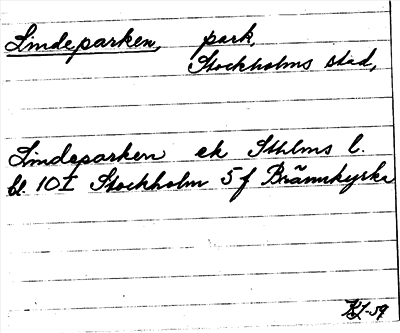 Lindeparken, park,
Stockholms stad,
Lindeparken ek Sthlms l.
bl. 10I Stockholm 5f Brännkyrka
KJ-59